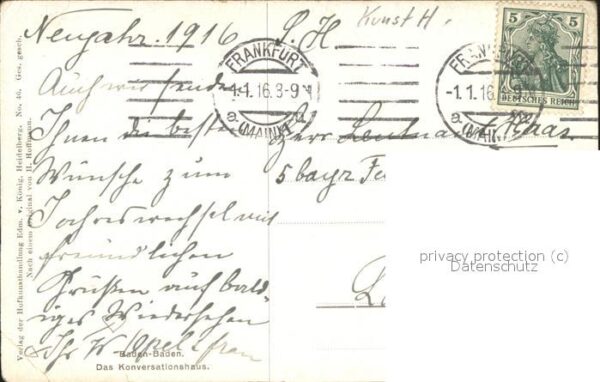 Neujahr. 1916
S. H
Kunst H.
Auch wir senden
Ihnen die besten
Wünsche zum
Jahreswechsel mit
freundlichen
Grüßen auf bal-
diges Wiedersehen
Ihr W u. frau
Herrn Leutnant
5 bayr
FRANKFURT
-1.1.16.8-9 N
a. (MAIN)
FRANKFURT
-1.1.16
a. (MAIN)
5 5
DEUTSCHES REICH
privacy protection (c)
Datenschutz
Baden-Baden.
Das Konversationshaus.
Verlag der Hofkunsthandlung Edm. v. König, Heidelberg. No. 40. Ges. gesch.
Nach einem Original von H. Hoffmann.